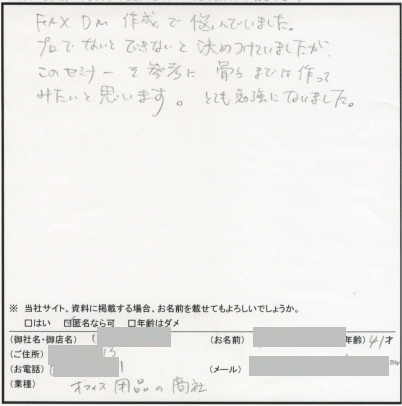 FAX DM 作成で悩んでいました。
プロでないとできないと決めつけていましたが、
このセミナーを参考に 骨子までは作って
みたいと思います。とても勉強になりました。
※ 当社サイト、資料に掲載する場合、お名前を載せてもよろしいでしょうか。
□はい ☑匿名なら可 □年齢はダメ
(御社名・御店名) (お名前) 年齢) 41才
(ご住所)
(お電話) (メール)
(業種) オフィス用品の商社